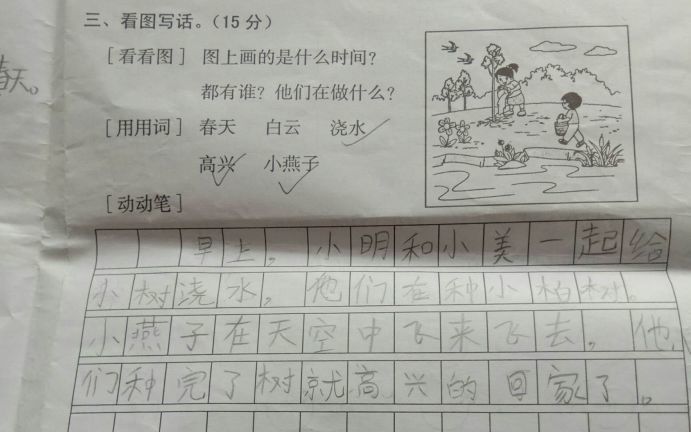 春天。
三、看图写话。(15分)
[看看图] 图上画的是什么时间?
都有谁?他们在做什么?
[用用词] 春天 白云 浇水
高兴 小燕子
[动动笔]
早上,小明和小美一起给
小树浇水,他们在种小柏树。
小燕子在天空中飞来飞去,他
们种完了树就高兴的回家了。